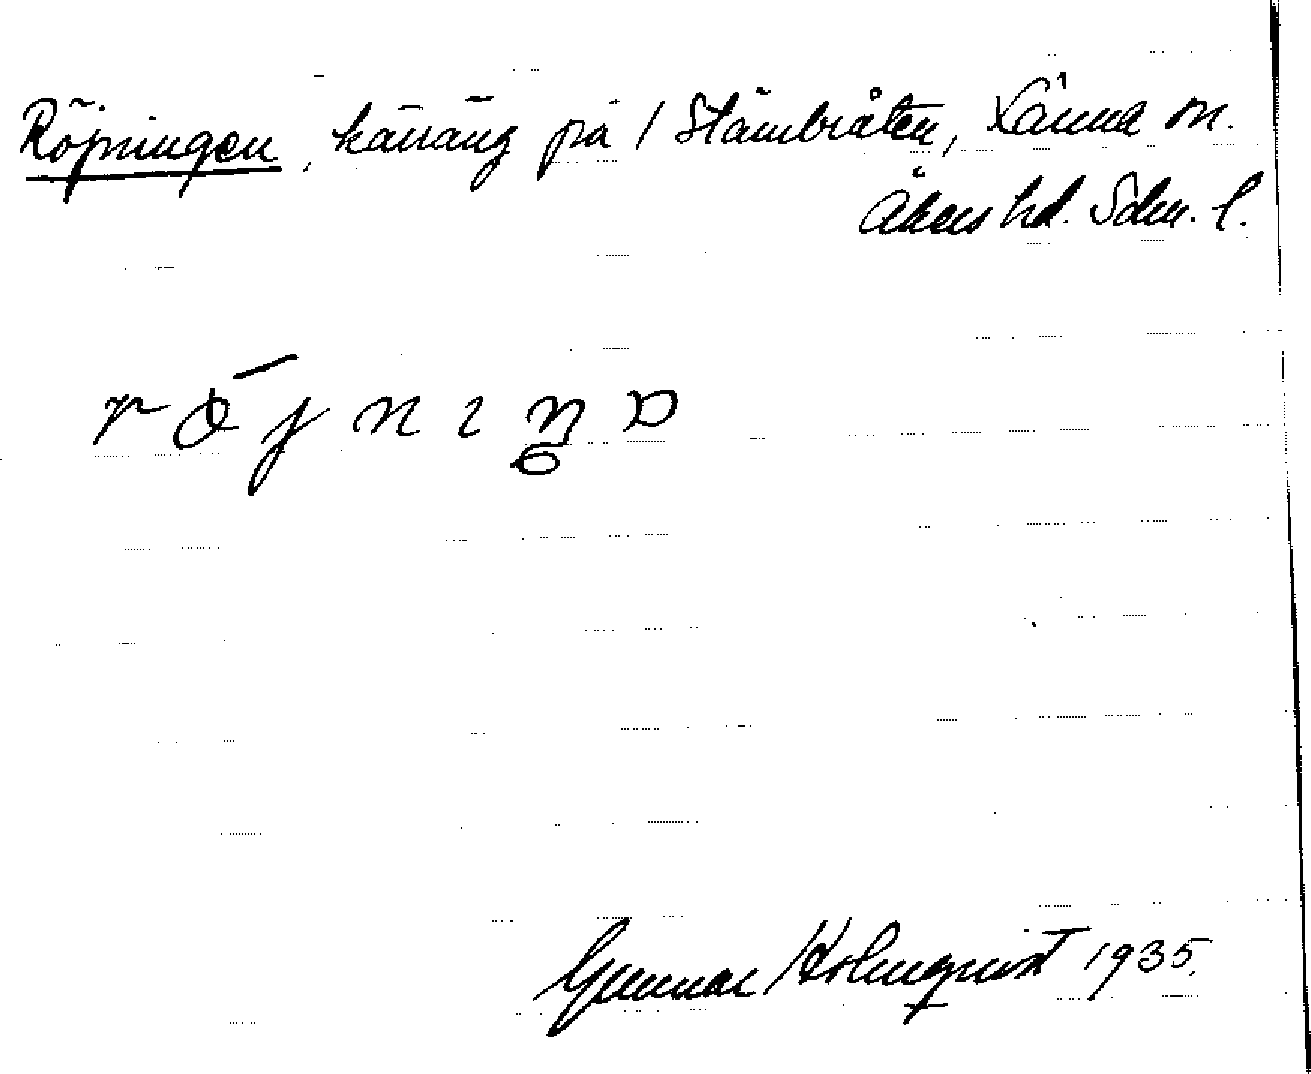 Röjningen, kärräng på / Stämbråten, Länna sn.
Åkers hd. Sdm. l.
Gunnar Holmqvist 1935.